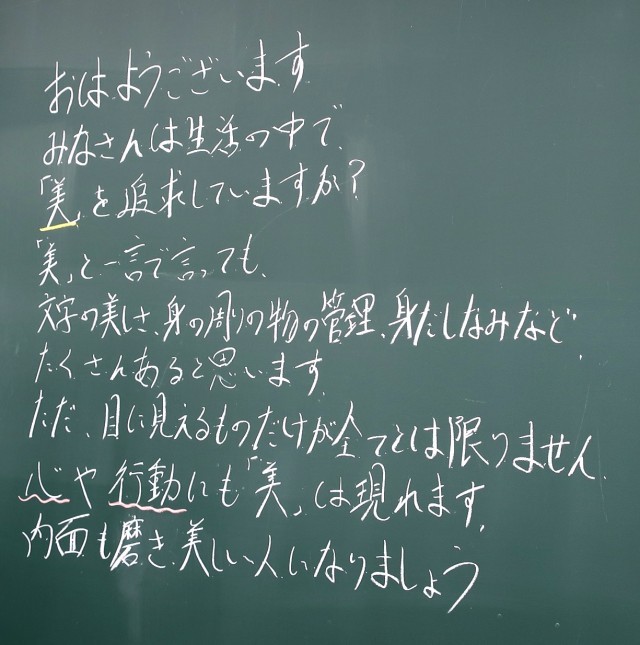 おはようございます
みなさんは生活の中で、
「美」を追求していますか？
「美」と一言で言っても、
文字の美しさ、身の周りの物の管理、身だしなみなど
たくさんあると思います。
ただ、目に見えるものだけが全てとは限りません。
心や行動にも「美」は現れます。
内面も磨き、美しい人になりましょう